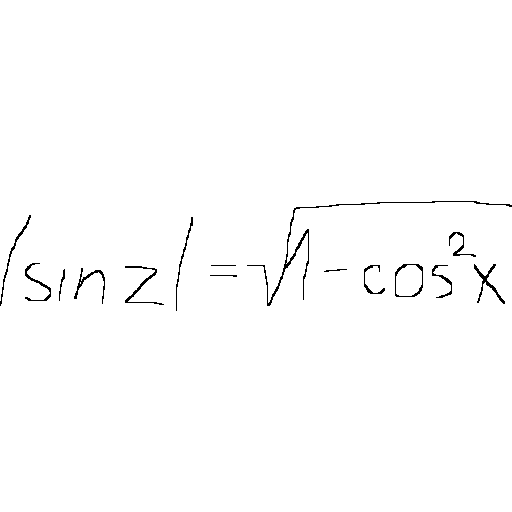 |sin z| = √1 - cos²x